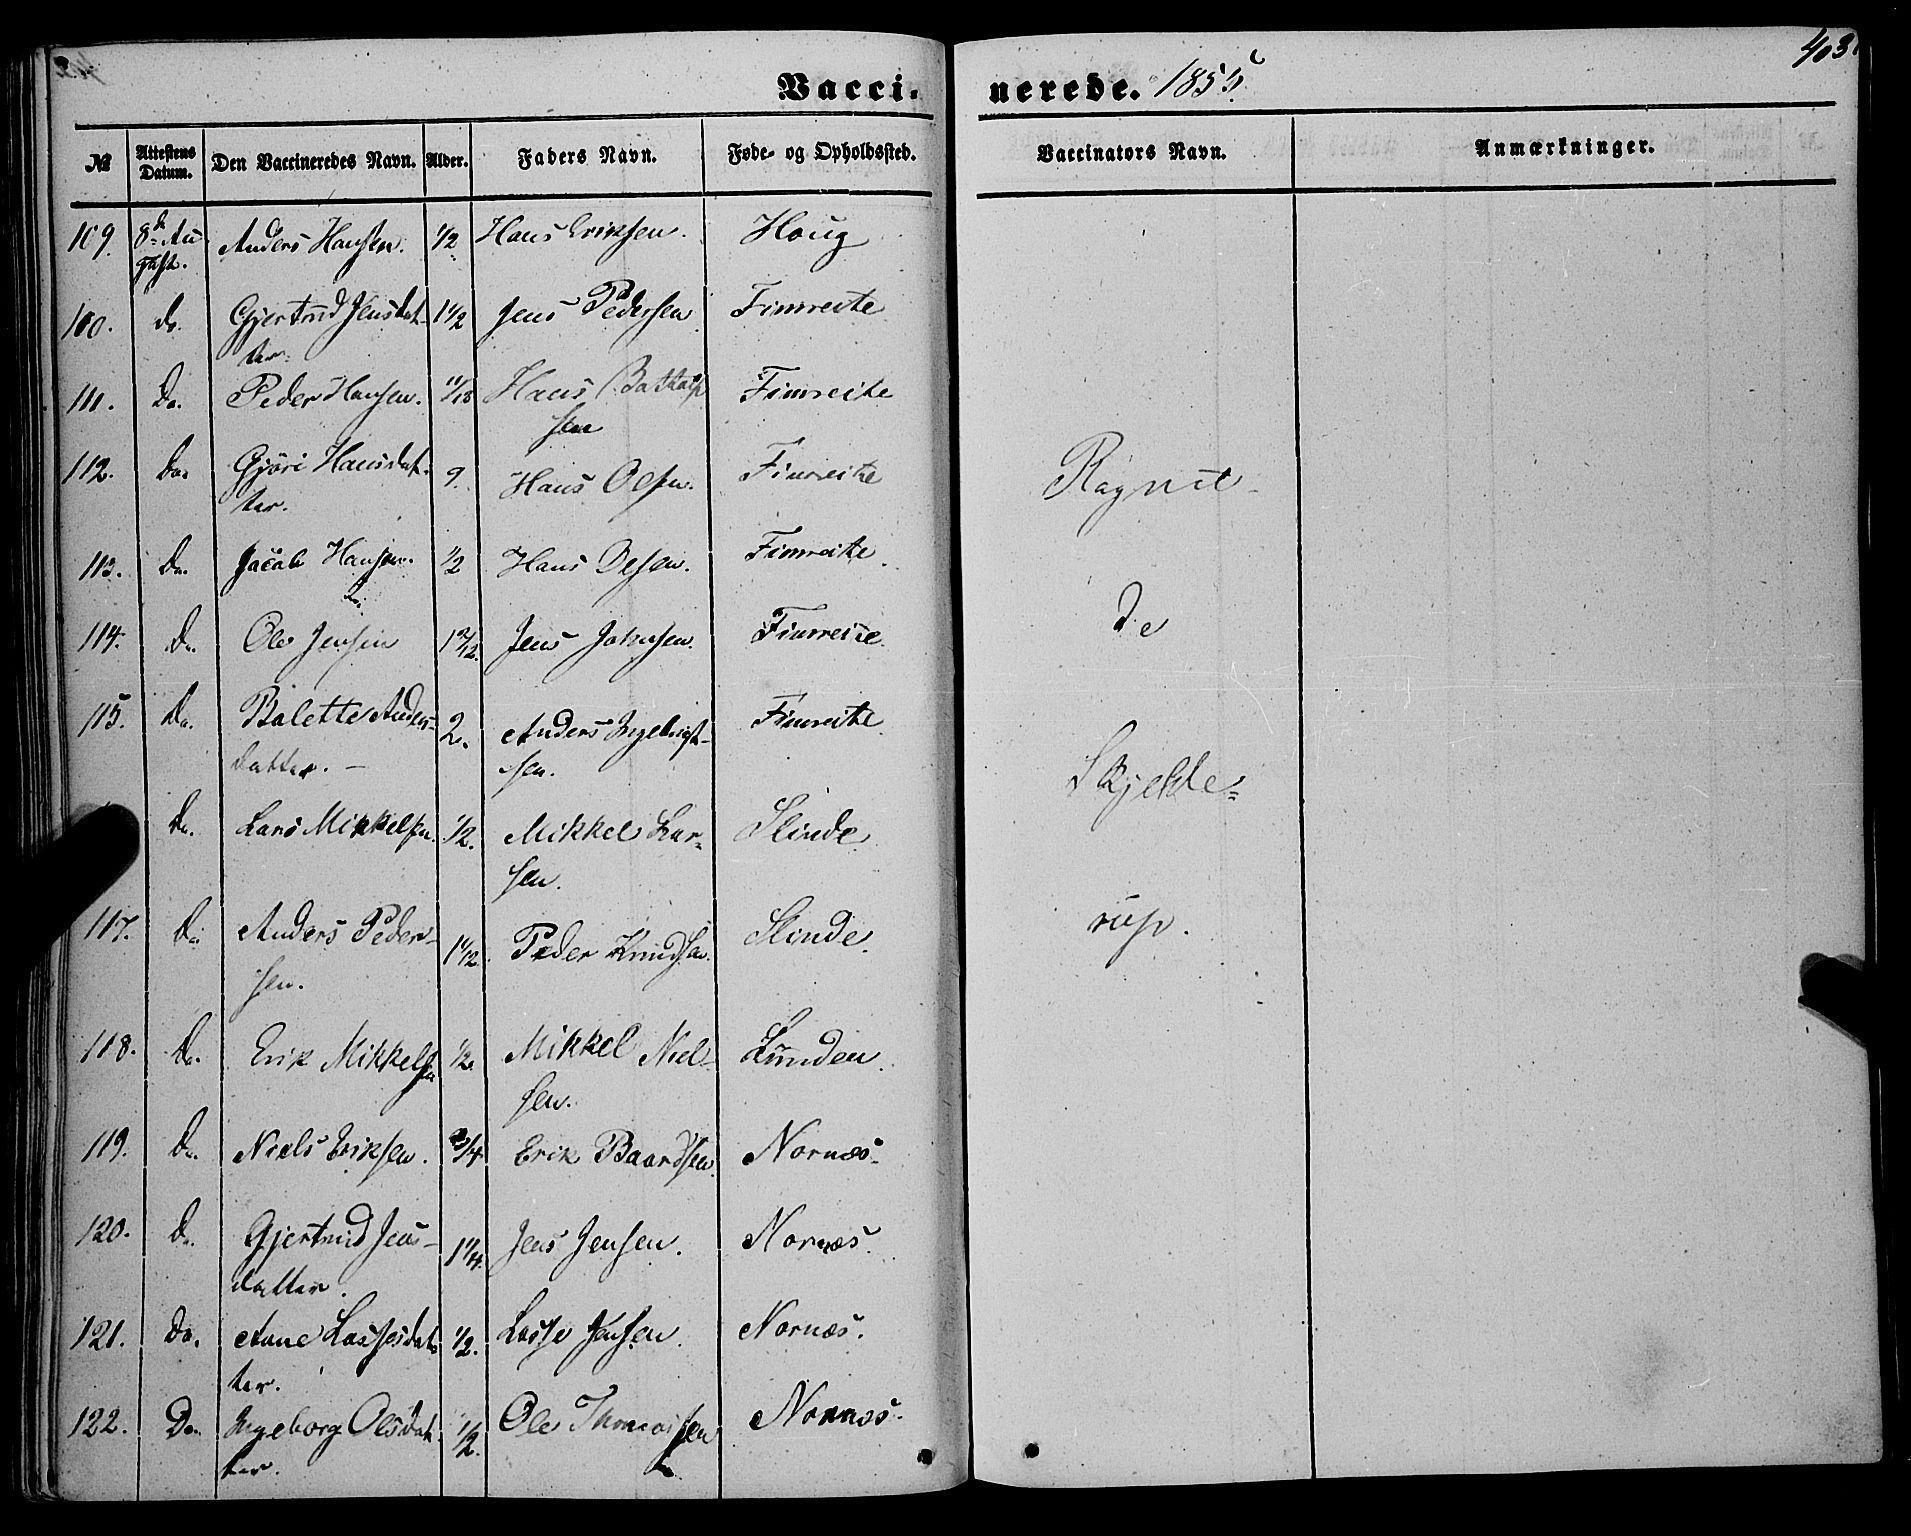 403
Vaccinerede. 1855.
№ Attestens Datum. Den Vaccineredes Navn. Alder. Faders Navn. Føde- og Opholdssted. Vaccinators Navn. Anmærkninger.
109. 8de Au Anders Hansen. 1/2 Hans Eriksen. Houg
gust.
110. do. Gjertrud Jensdat- 1 1/2 Jens Pedersen Fimreite
ter.
111. Do. Peder Hansen. Hans Fimreite
sen
112. Do. Gjøri Hansdat- 9. Hans Olsen. Fimreite
ter.
Ragnit
113. Do. Jacob Hansen. 1/2 Hans Olsen. Fimreite
114. Do. Ole Jensen 1 2/12. Jens Johnsen. Fimreite
de
115. Do. Balette Anders- 2. Anders Ingebrigt- Fimreite
datter. sen.
Skjelde=
Do. Lars Mikkelsen. 1/2. Mikkel Lar- Slinde
sen.
117. Do. Anders Peder- 1 1/12. Peder Knudsen. Slinde.
sen.
rup.
118. Do. Erik Mikkelsen 1/2. Mikkel Niel- Lunden.
sen.
119. Do. Niels Eriksen. 3/4 Erik Baardsen Nornæs.
120. Do. Gjertrud Jens- 1 1/4. Jens Jensen. Nornæs.
datter.
121. Do. Anne Lassesdat- 1/2. Lasse Jensen. Nornæs.
ter.
122. Do. Ingeborg Olsdat- 1/2. Ole Thomassen Nornæs.
ter.